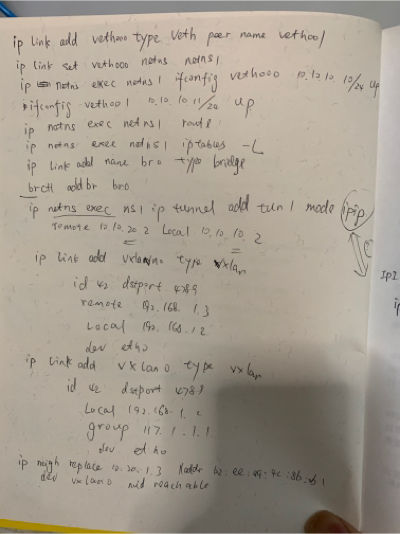 ip link add veth000 type veth peer name veth001
ip link set veth000 netns netns1
ip netns exec netns1 ifconfig veth000 10.10.10.10/24 up
ifconfig veth001 10.10.10.11/24 up
ip netns exec netns1 route
ip netns exec netns1 iptables -L
ip link add name br0 type bridge
brctl addbr br0
ip netns exec ns1 ip tunnel add tun1 mode ipip
remote 10.10.20.2 local 10.10.10.2
ip link add vxlan0 type vxlan
id 42 dstport 4789
remote 192.168.1.3
local 192.168.1.2
dev eth0
ip link add vxlan0 type vxlan
id 42 dstport 4789
local 192.168.1.2
group
dev eth0
ip neigh replace 10.20.1.3 lladdr
dev vxlan0 nud reachable